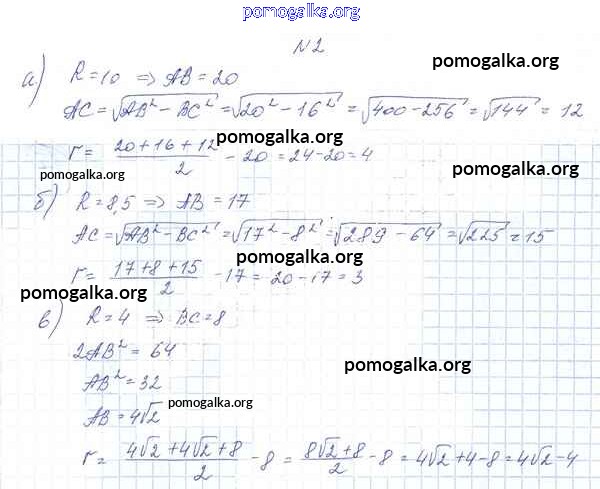 pomogalka.org
№2
pomogalka.org
а) R=10 ⇒ AB=20
AC=√(AB²-BC²)=√(20²-16²)=√(400-256)=√144=12
pomogalka.org
r=(20+16+12)/2-20=24-20=4
pomogalka.org
pomogalka.org
б) R=8,5 ⇒ AB=17
AC=√(AB²-BC²)=√(17²-8²)=√(289-64)=√225=15
pomogalka.org
r=(17+8+15)/2-17=20-17=3
pomogalka.org
в) R=4 ⇒ BC=8
2AB²=64
pomogalka.org
AB²=32
AB=4√2
pomogalka.org
r=(4√2+4√2+8)/2-8=(8√2+8)/2-8=4√2+4-8=4√2-4